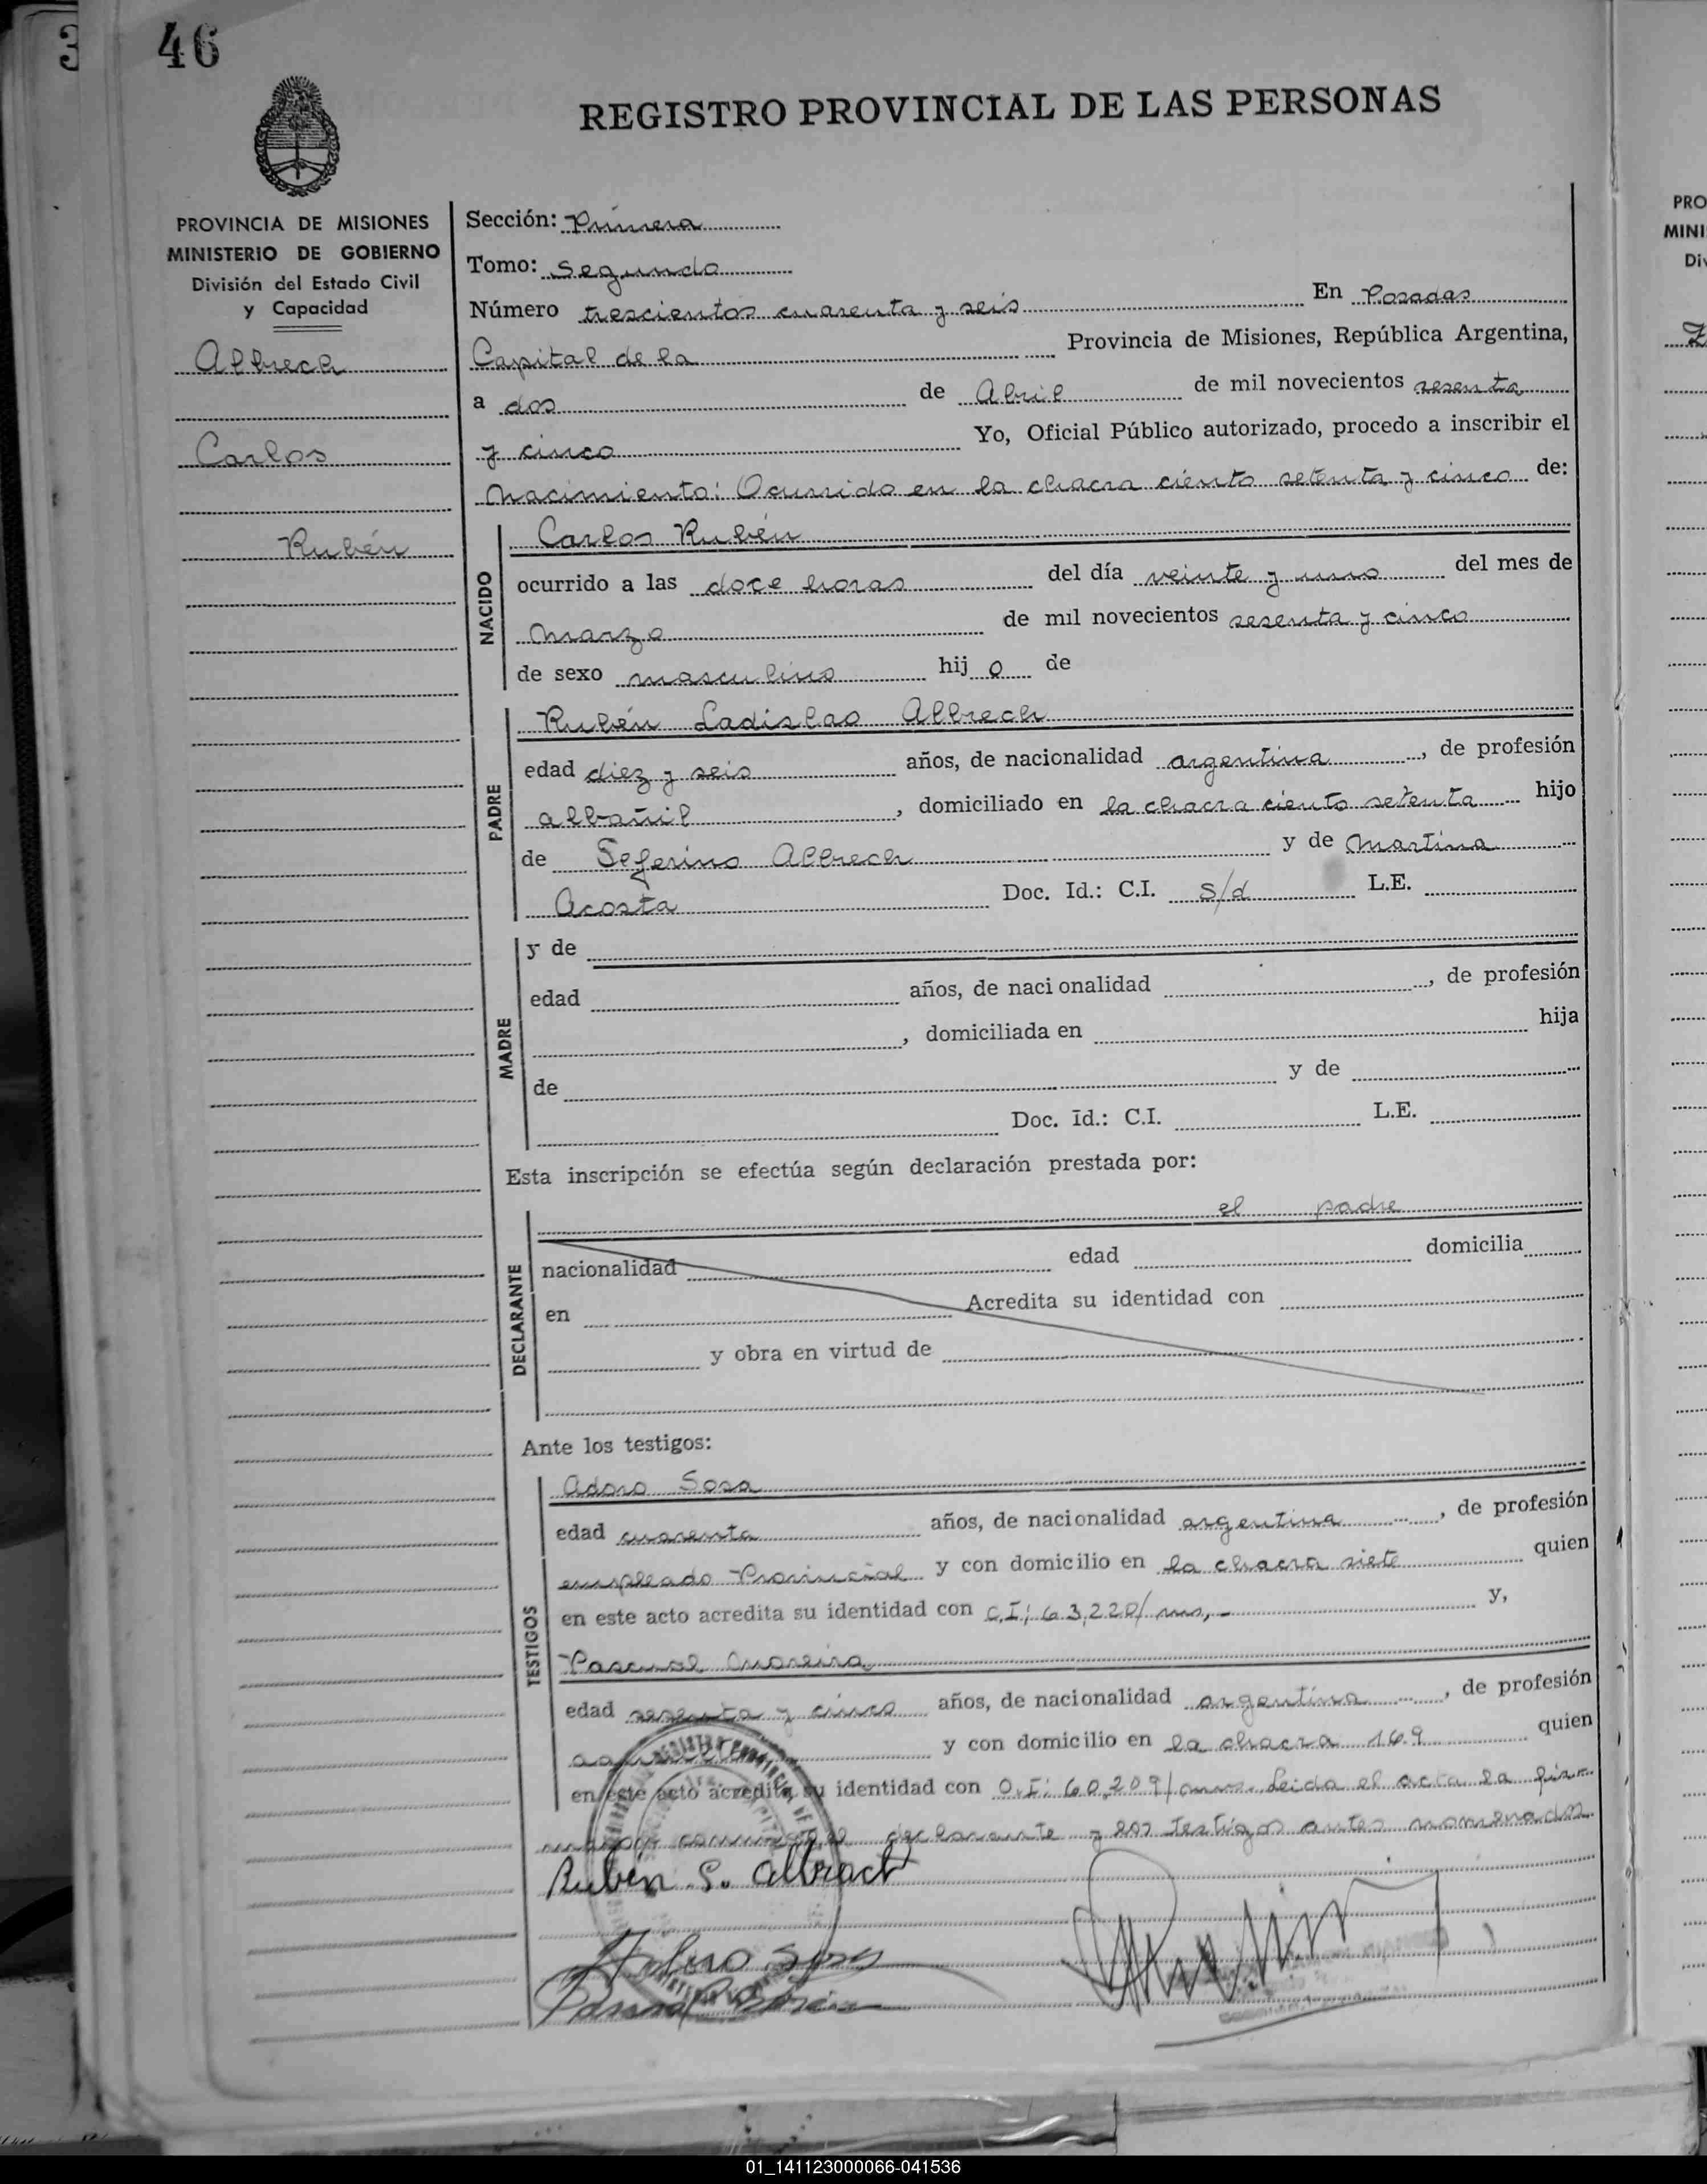 46
REGISTRO PROVINCIAL DE LAS PERSONAS
PROVINCIA DE MISIONES
MINISTERIO DE GOBIERNO
División del Estado Civil
y Capacidad
Albrech
Carlos
Rubén
Sección: Primera
Tomo: Segundo
Número trescientos cuarenta y seis En Posadas
Capital de la Provincia de Misiones, República Argentina,
a dos de Abril de mil novecientos sesenta
y cinco Yo, Oficial Público autorizado, procedo a inscribir el
Nacimiento: Ocurrido en la chacra ciento setenta y cinco de:
NACIDO
Carlos Rubén
ocurrido a las doce horas del día veinte y uno del mes de
Marzo de mil novecientos sesenta y cinco
de sexo masculino hij o de
PADRE
Rubén Ladislao Albrech
edad diez y seis años, de nacionalidad argentina, de profesión
albañil, domiciliado en la chacra ciento setenta hijo
de Seferino Albrech y de Martina
Acosta Doc. Id.: C.I. s/d L.E.
MADRE
y de
edad años, de nacionalidad , de profesión
, domiciliada en hija
de y de
Doc. Id.: C.I. L.E.
Esta inscripción se efectúa según declaración prestada por:
el padre
DECLARANTE
nacionalidad edad domicilia
en Acredita su identidad con
y obra en virtud de
Ante los testigos:
TESTIGOS
Adoro Sosa
edad cuarenta años, de nacionalidad argentina, de profesión
empleado Provincial y con domicilio en la chacra siete quien
en este acto acredita su identidad con C.I: 63,220/mns,- y,
Pascual Moreira
edad sesenta y cinco años, de nacionalidad argentina, de profesión
y con domicilio en la chacra 169 quien
en este acto acredita su identidad con C.I: 60,209/mns. Leida el acta la fir-
declarante y los testigos antes nomenados
Rubén S. Albracht
Sosa
01_141123000066-041536